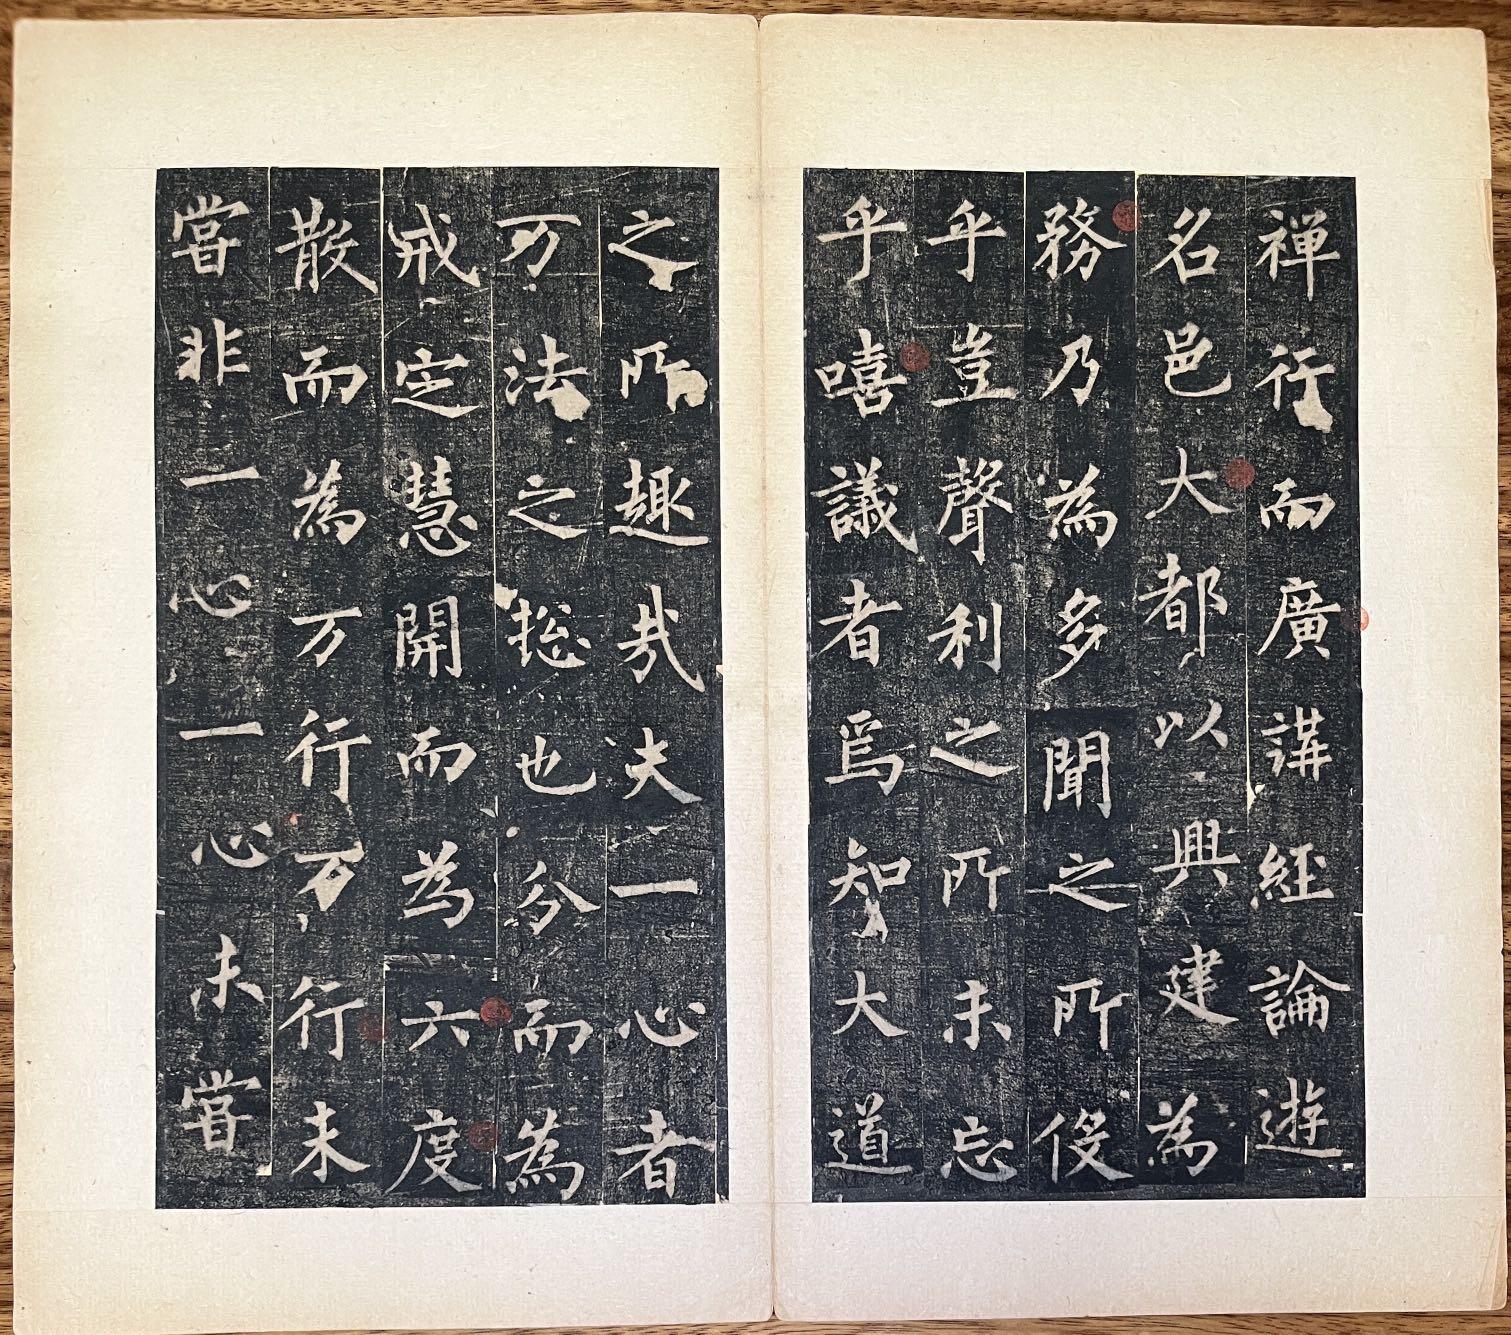 禪行而廣講経論遊
名邑大都以興建為
務乃為多聞之所伇
乎豈聲利之所未忘
乎嘻議者焉知大道
之所趣哉夫一心者
万法之揔也分而為
戒定慧開而為六度
散而為万行万行未
嘗非一心一心未嘗